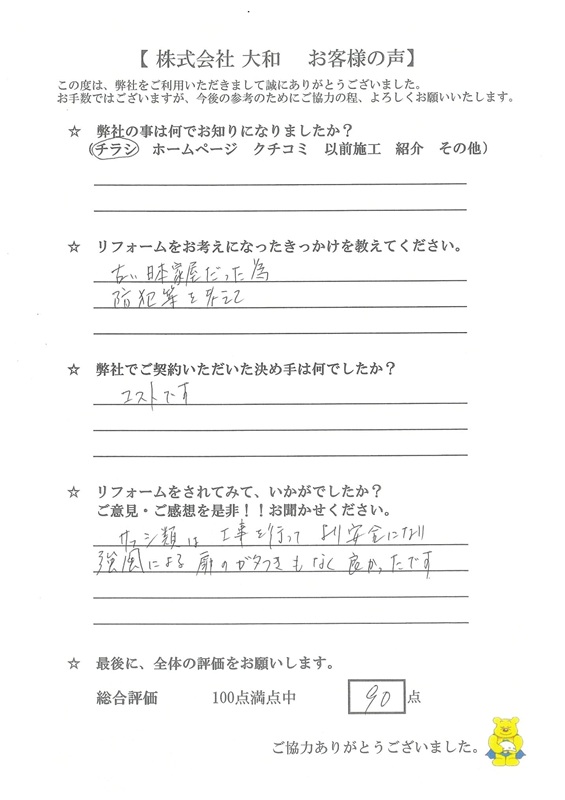 【 株式会社 大和 お客様の声】
この度は、弊社をご利用いただきまして誠にありがとうございました。
お手数ではございますが、今後の参考のためにご協力の程、よろしくお願いいたします。
☆ 弊社の事は何でお知りになりましたか？
（チラシ ホームページ クチコミ 以前施工 紹介 その他）
☆ リフォームをお考えになったきっかけを教えてください。
古い日本家屋だった為
防犯等を考えて
☆ 弊社でご契約いただいた決め手は何でしたか？
コストです
☆ リフォームをされてみて、いかがでしたか？
ご意見・ご感想を是非！！お聞かせください。
サッシ類は工事を行ってより安全になり
強風による扉のガタつきもなく良かったです
☆ 最後に、全体の評価をお願いします。
総合評価 100点満点中 90 点
ご協力ありがとうございました。